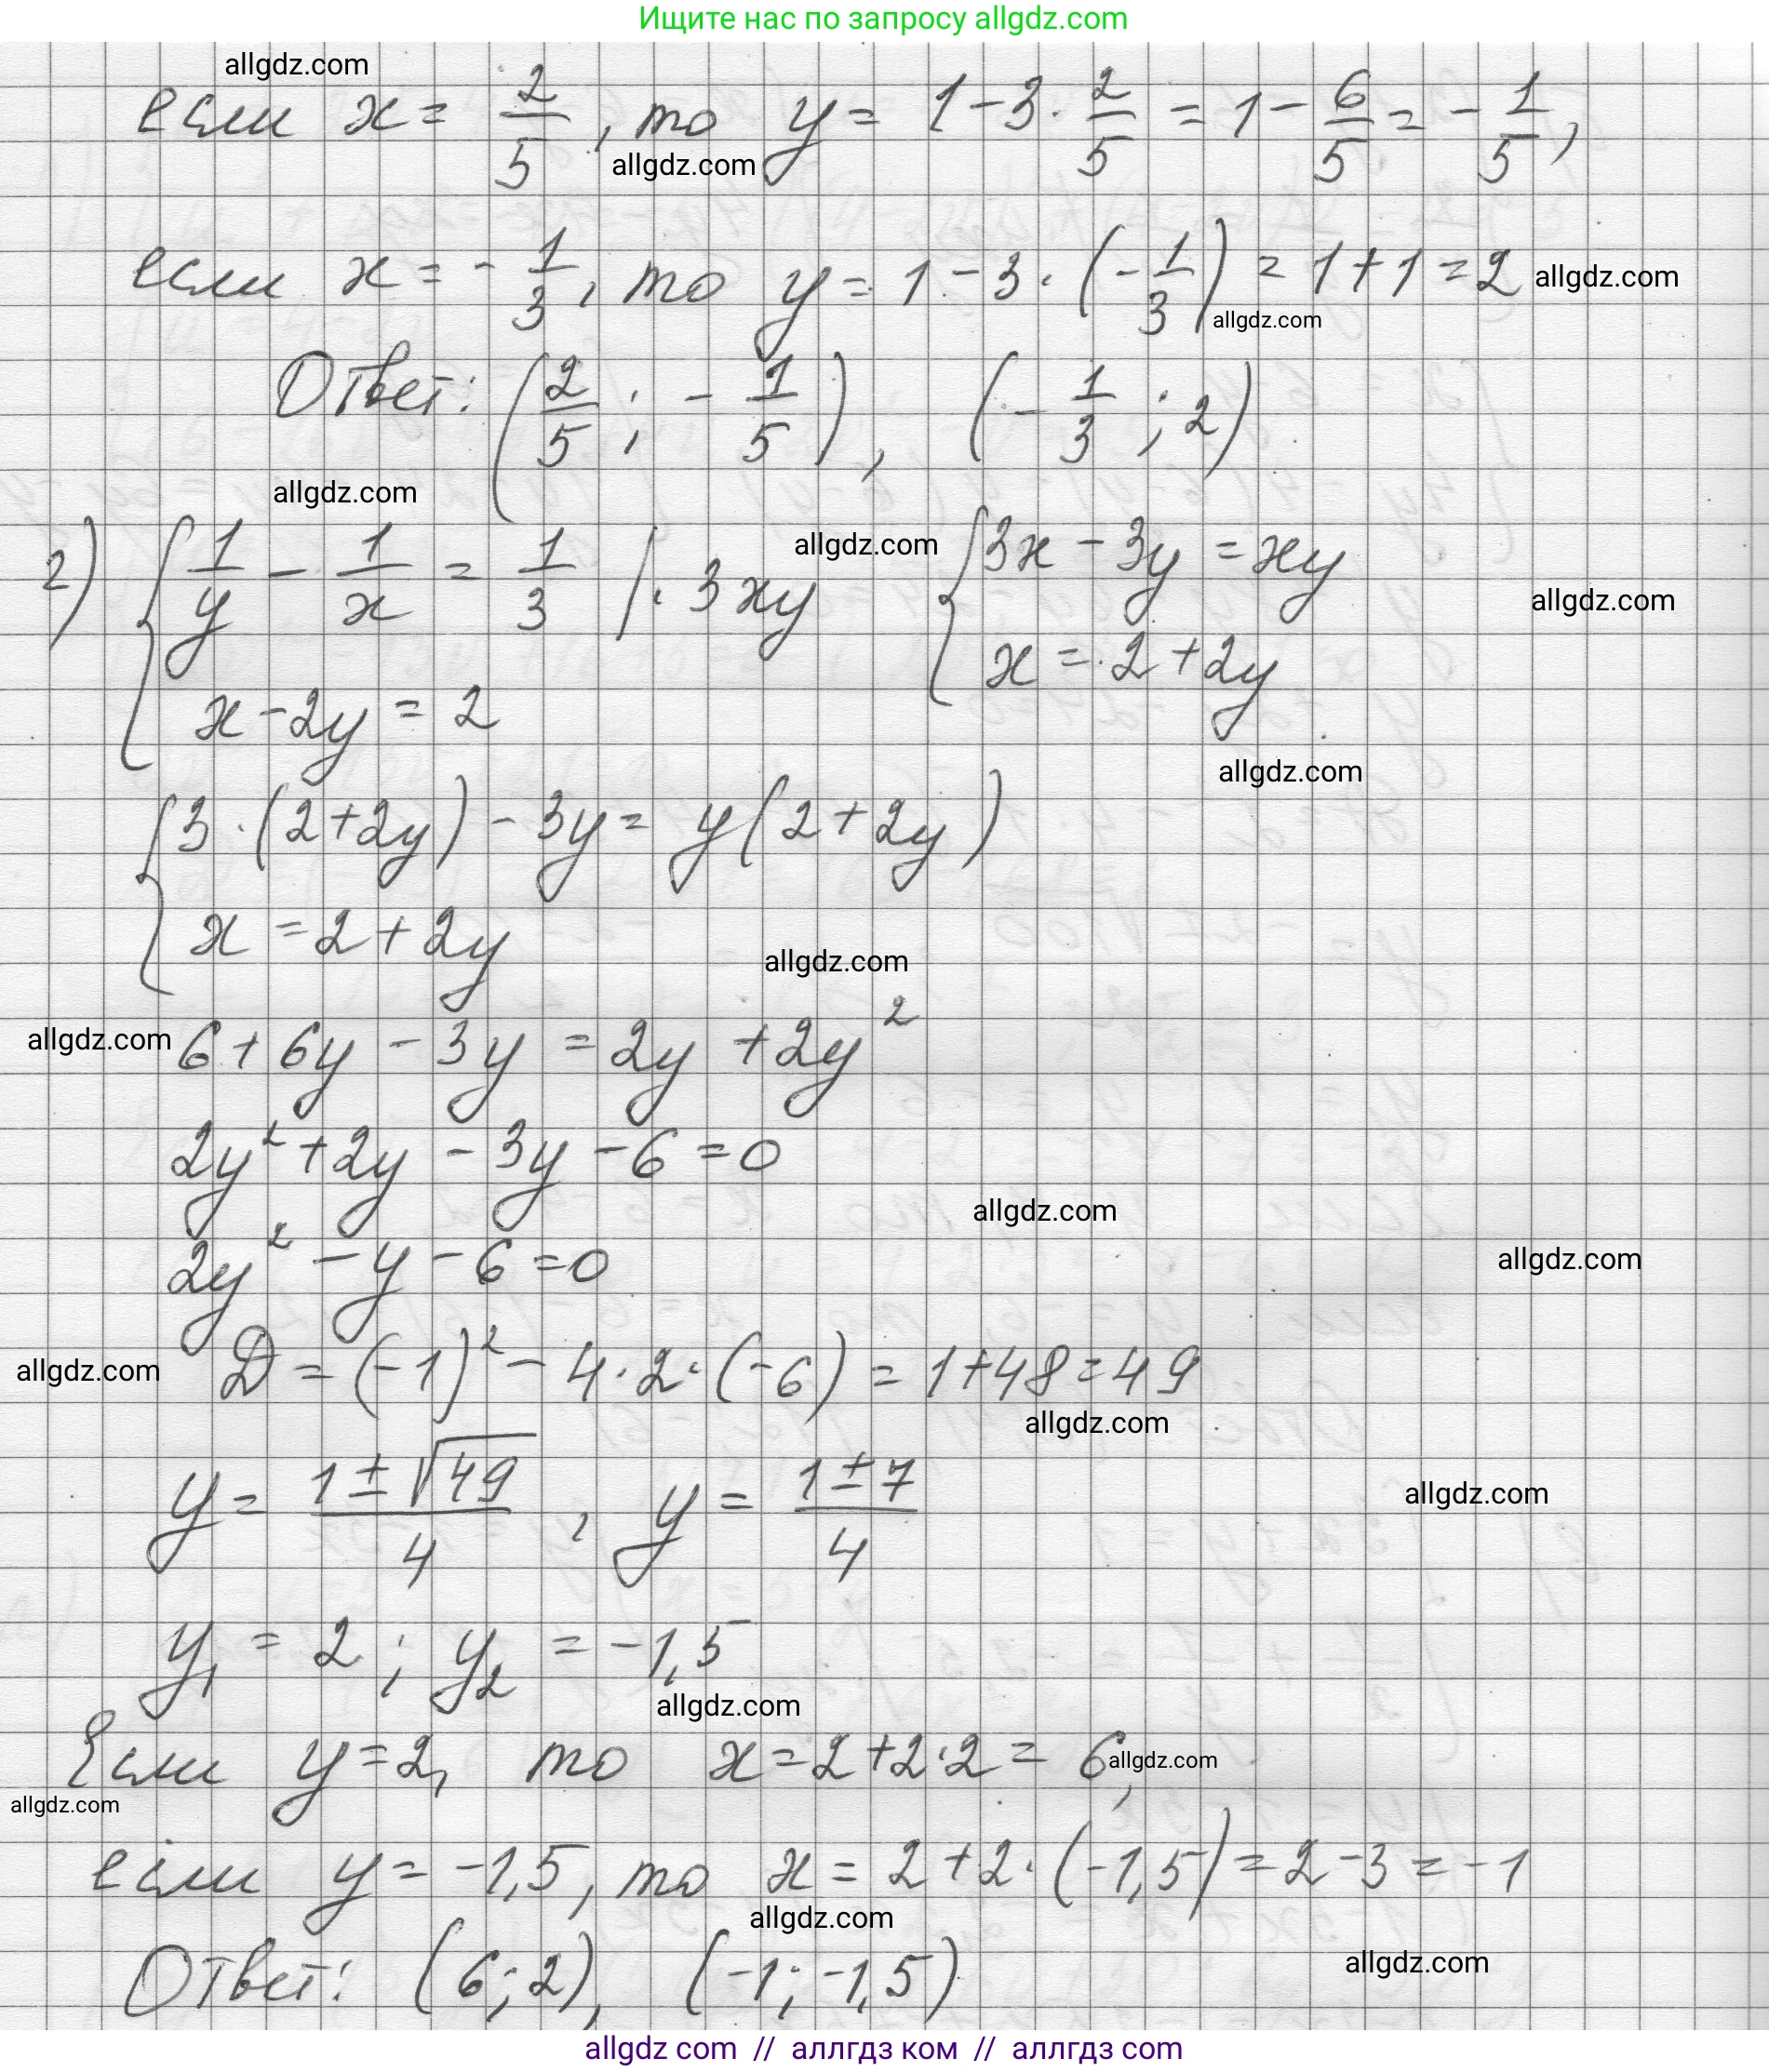 Ищите нас по запросу allgdz.com
allgdz.com
если x = 2/5, то y = 1 - 3 · 2/5 = 1 - 6/5 = - 1/5,
allgdz.com
если x = - 1/3, то y = 1 - 3 · (- 1/3) = 1 + 1 = 2
allgdz.com
allgdz.com
Ответ: (2/5; - 1/5), (- 1/3; 2)
allgdz.com
2) { 1/y - 1/x = 1/3 | · 3xy { 3x - 3y = xy
allgdz.com
allgdz.com
x - 2y = 2 x = 2 + 2y
allgdz.com
{ 3 · (2 + 2y) - 3y = y(2 + 2y)
x = 2 + 2y
allgdz.com
allgdz.com
6 + 6y - 3y = 2y + 2y²
2y² + 2y - 3y - 6 = 0
allgdz.com
2y² - y - 6 = 0
allgdz.com
allgdz.com
D = (-1)² - 4 · 2 · (-6) = 1 + 48 = 49
allgdz.com
y = (1 ± √49)/4, y = (1 ± 7)/4
allgdz.com
y₁ = 2; y₂ = -1,5
allgdz.com
Если y = 2, то x = 2 + 2 · 2 = 6,
allgdz.com
allgdz.com
если y = -1,5, то x = 2 + 2 · (-1,5) = 2 - 3 = -1
allgdz.com
Ответ: (6; 2), (-1; -1,5)
allgdz.com
allgdz com // аллгдз ком // аллгдз com